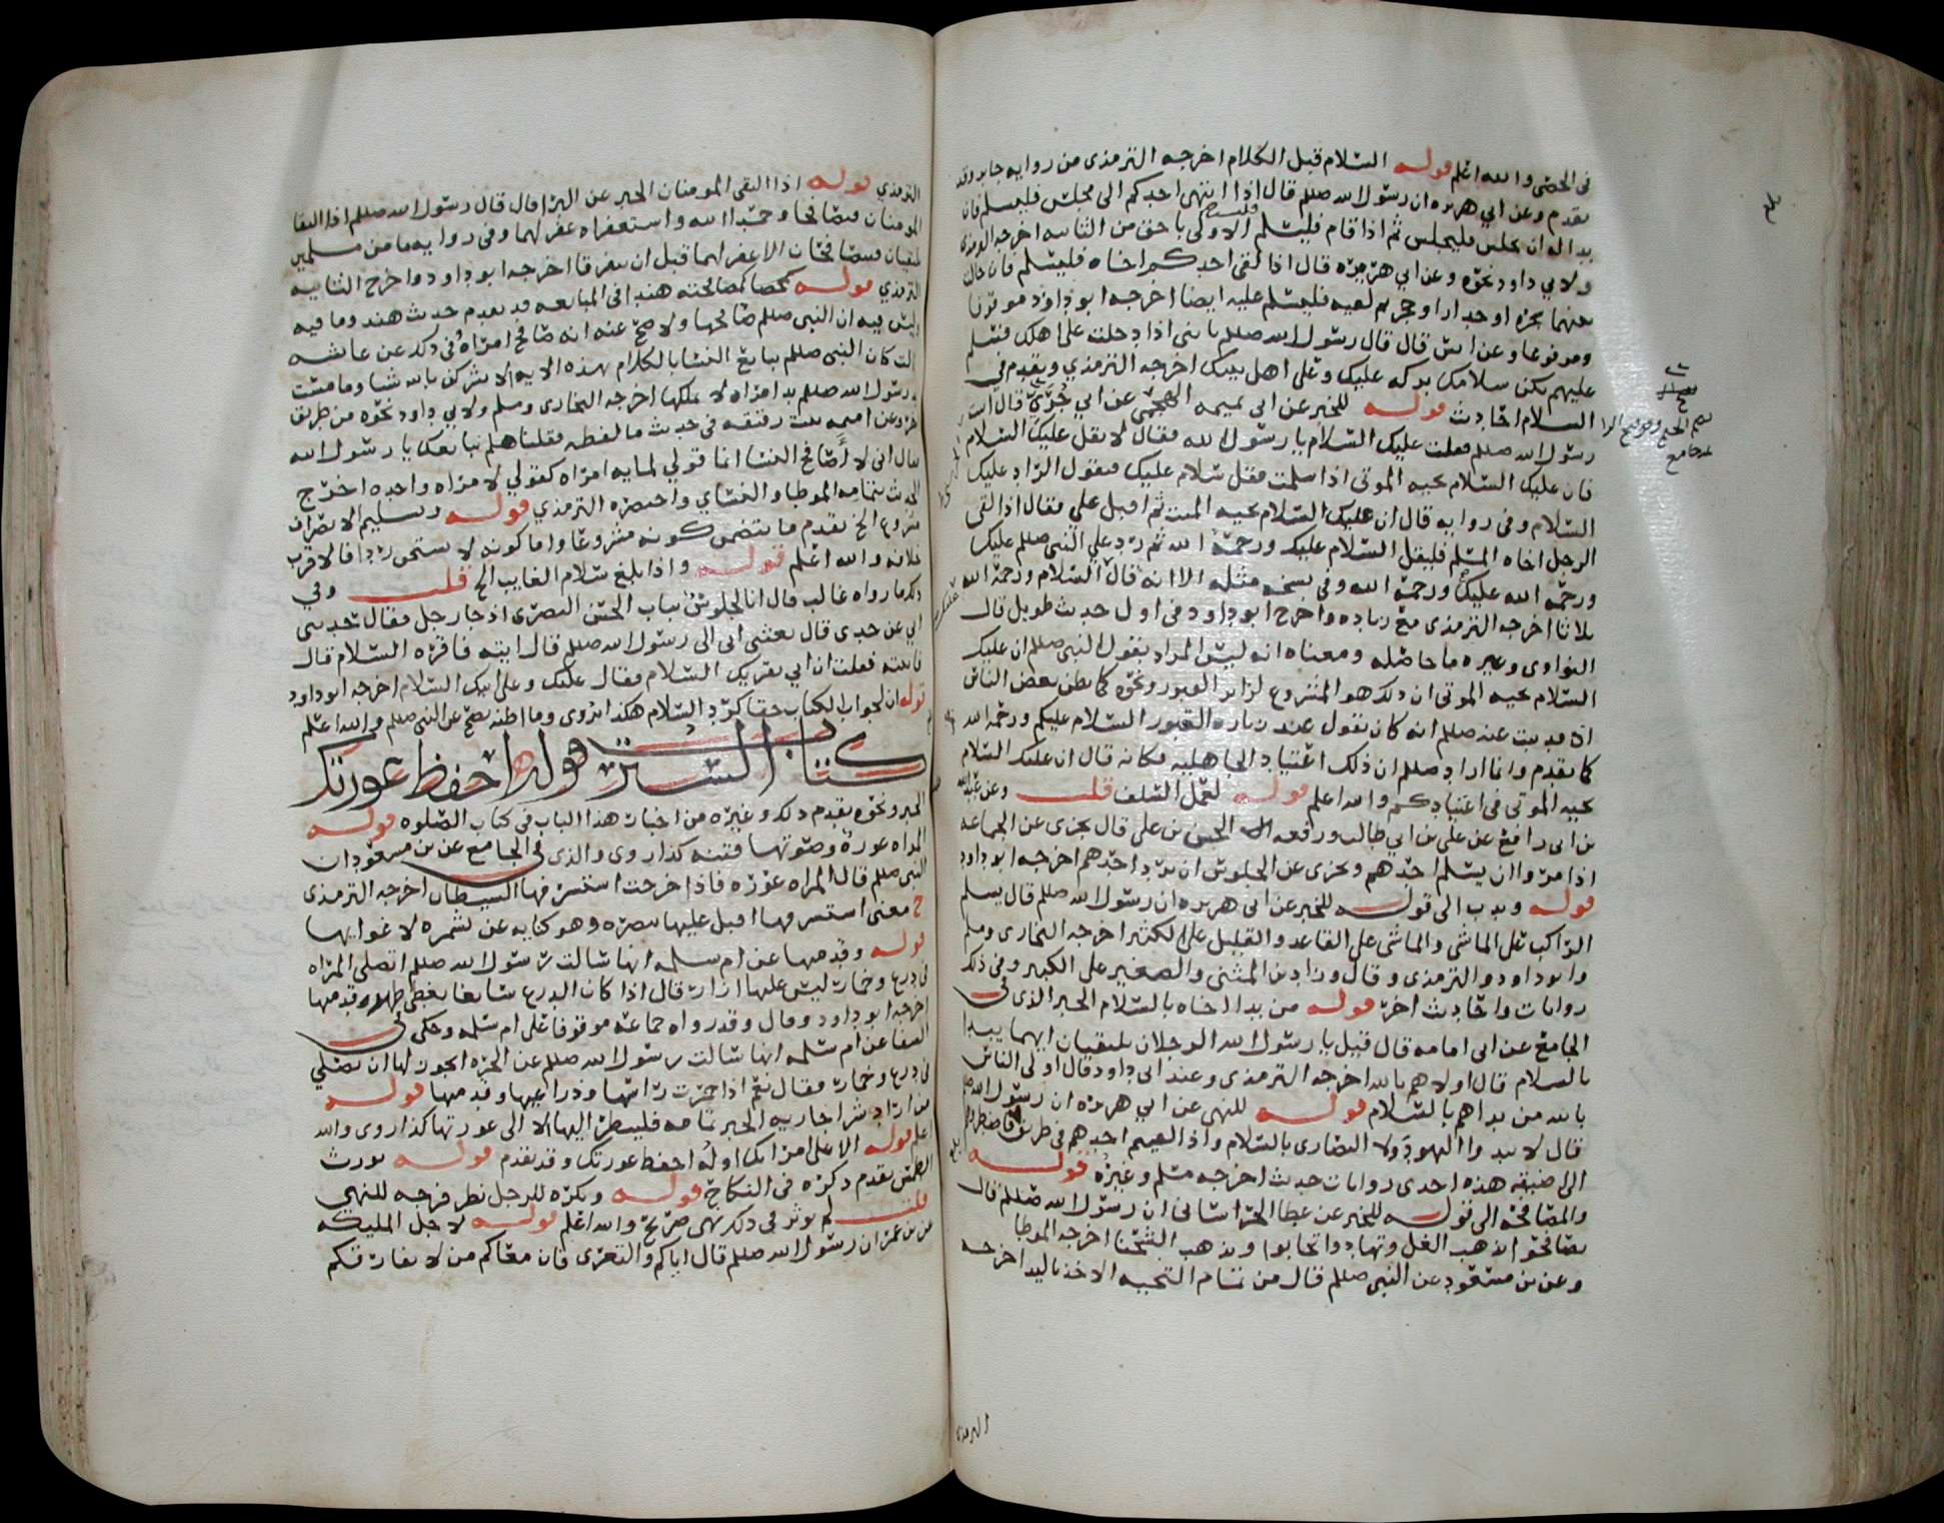 في الحصى والله اعلم قوله السلام قبل الكلام اخرجه الترمذى من روايه جابر وقد
تقدم وعن ابي هريره ان رسول الله صللم قال اذا انتهى احدكم الى مجلس فليسلم فان
بدا له ان يجلس فليجلس ثم اذا قام فليسلم فليست الاولى باحق من الثانيه اخرجه الترمذى
ولابي داود نحوه وعن ابي هريره قال اذا لقى احدكم اخاه فليسلم فان حال
بينهما شجره او جدار او حجر ثم لقيه فليسلم عليه ايضا اخرجه ابو داود موقوفا
ومرفوعا وعن انس قال قال رسول الله صللم يا بنى اذا دخلت على اهلك فسلم
عليهم يكن سلامك بركه عليك وعلى اهل بيتك اخرجه الترمذي وتقدم في
السلام احاديث قوله للخبر عن ابى تميمه الهجيمى عن ابي جُرَيّ قال اتيت
رسول الله صللم فقلت عليك السلام يا رسول الله فقال لا تقل عليك السلام
فان عليك السلام تحيه الموتى اذا سلمت فقل سلام عليك فيقول الراد عليك
السلام وفى روايه قال ان عليك السلام تحيه الميت ثم اقبل علي فقال اذا لقى
الرجل اخاه المسلم فليقل السلام عليك ورحمة الله ثم رد علي النبى صللم عليك
ورحمة الله عليك ورحمة الله وفى نسخه مثله الا انه قال السلام ورحمة الله
ثلاثا اخرجه الترمذى مع زياده واخرج ابو داود فى اول حديث طويل قال
النواوى وغيره ما حاصله ومعناه انه ليس المراد بقول النبى صللم ان عليك
السلام تحيه الموتى ان ذلك هو المشروع لزاير القبور ونحوه كما يظن بعض الناس
اذ قد ثبت عنه صللم انه كان يقول عند زياره القبور السلام عليكم ورحمة الله
كما تقدم وانما اراد صللم ان ذلك اعتياد الجاهليه فكانه قال ان عليك السلام
تحيه الموتى فى اعتيادكم والله اعلم قوله لعمل السلف قلت وعن عبيدالله
بن ابى رافع عن على بن ابي طالب ورفعه الحسن بن على قال يجزى عن الجماعه
اذا مروا ان يسلم احدهم ويجزى عن الجلوس ان يرد احدهم اخرجه ابو داود
قوله وندب الى قوله للخبر عن ابى هريره ان رسول الله صللم قال يسلم
الراكب على الماشى والماشى على القاعد والقليل على الكثير اخرجه البخارى ومسلم
وابو داود والترمذى وقال وزاد بن المثنى والصغير على الكبير وفى ذلك
روايات واحاديث اخر قوله من بدا اخاه بالسلام الخبر الذى فى
الجامع عن ابى امامه قال قيل يا رسول الله الرجلان يلتقيان ايهما يبدا
بالسلام قال اولاهم بالله اخرجه الترمذى وعند ابى داود قال اولى الناس
بالله من بداهم بالسلام قوله للنهى عن ابي هريره ان رسول الله صللم
قال لا تبدوا اليهود ولا النصارى بالسلام واذا لقيتم احدهم فى طريق فاضطروه
الى اضيقه هذه احدى روايات حديث اخرجه مسلم وغيره قوله
والمصافحه الى قوله للخبر عن عطا الخراسانى ان رسول الله صللم قال
تصافحوا يذهب الغل وتهادوا تحابوا ويذهب الشحنا اخرجه الموطا
وعن بن مسعود عن النبى صللم قال من تمام التحيه الاخذ باليد اخرجه
الترمذى
الترمذي قوله اذا التقى المومنان الخبر عن البرا قال قال رسول الله صللم اذا التقا
المومنان فتصافحا وحمدا الله واستغفراه غفر لهما وفى روايه ما من مسلمين
يلتقيان فيتصافحان الا غفر لهما قبل ان يتفرقا اخرجه ابو داود واخرج الثانيه
الترمذي قوله كمصافحته هندا فى المبايعه قد تقدم حديث هند وما فيه
وليس فيه ان النبى صللم صافحها ولا صح عنه انه صافح امراة فى ذلك عن عايشه
قالت كان النبى صللم يبايع النسا بالكلام بهذه الايه الا يشركن بالله شيا وما مست
يد رسول الله صللم يد امراه لا يملكها اخرجه البخارى ومسلم ولابي داود نحوه من طريق
اخر وعن اميمه بنت رقيقه فى حديث ما لفظه فقلنا هلم نبايعك يا رسول الله
فقال انى لا أصافح النسا انما قولي لمايه امراه كقولي لامراه واحده اخرج
الحديث بتمامه الموطا والنساي واختصره الترمذي قوله وتسليم الانصراف
مشروع الخ تقدم ما يتضمن كونه مشروعا واما كونه لا يستحق ردا فالاقرب
خلافه والله اعلم قوله واذا بلغ سلام الغايب الخ قلت وفي
ذلك ما رواه غالب قال انا لجلوس بباب الحسن البصرى اذ جا رجل فقال حدثنى
ابي عن جدى قال بعثنى ابى الى رسول الله صللم قال ايته فاقره السلام قال
فاتيته فقلت ان ابي يقريك السلام فقال عليك وعلى ابيك السلام اخرجه ابو داود
قوله ان لجواب الكتاب حقا كرد السلام هكذا روى وما اظنه يصح عن النبى صللم والله اعلم
كتاب الستر قوله احفظ عورتك
الخبر ونحوه تقدم ذلك وغيره من اخبار هذا الباب فى كتاب الصلوه قوله
المراه عورة وصوتها فتنه كذا روى والذى فى الجامع عن بن مسعود ان
النبى صللم قال المراه عوره فاذا خرجت استشرفها الشيطان اخرجه الترمذى
ح معنى استشرفها اقبل عليها ببصره وهو كنايه عن تشمره لاغوايها
قوله وقدميها عن ام سلمه انها سالت رسول الله صللم اتصلي المراه
فى درع وخمار ليس عليها ازار قال اذا كان الدرع سابغا يغطى ظهور قدميها
اخرجه ابو داود وقال وقد رواه جماعة موقوفا على ام سلمه وحكى فى
الشفا عن ام سلمه انها سالت رسول الله صللم عن الحره ايجوز لها ان تصلي
فى درع وخمار فقال نعم اذا خمرت راسها وذراعيها وقدميها قوله
من اراد شرا جاريه الخبر تمامه فلينظر اليها الا الى عورتها كذا روى والله
اعلم قوله الا على امراتك اوله احفظ عورتك وقد تقدم قوله يورث
الطمس تقدم ذكره فى النكاح قوله ويكره للرجل نظر فرجه للنهي
قلت لم يوثر فى ذلك نهى صريح والله اعلم قوله لاجل المليكه
عن بن عمر ان رسول الله صللم قال اياكم والتعرى فان معكم من لا يفارقكم